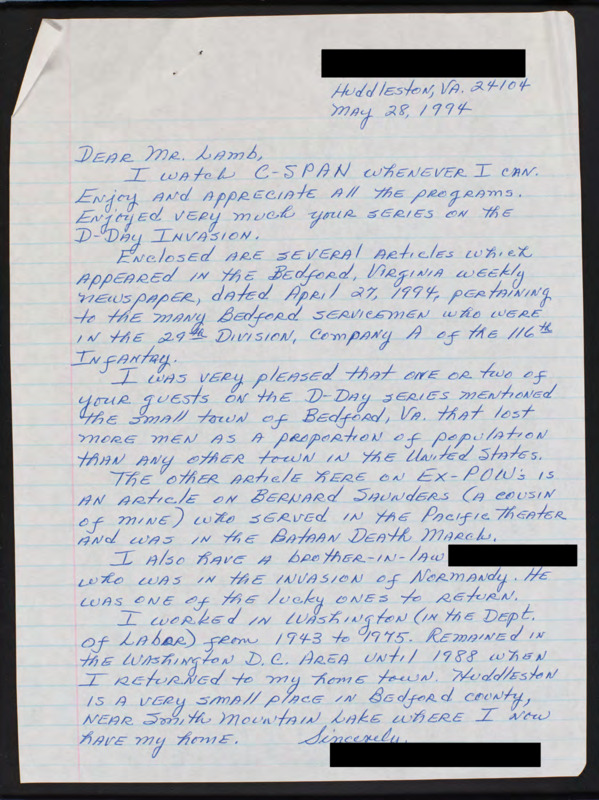 Huddleston, VA. 24104
May 28, 1994
Dear Mr. Lamb,
I watch C-SPAN whenever I can.
Enjoy and appreciate all the programs.
Enjoyed very much your series on the
D-Day Invasion.
Enclosed are several articles which
appeared in the Bedford, Virginia weekly
newspaper, dated April 27, 1994, pertaining
to the many Bedford servicemen who were
in the 29th Division, Company A of the 116th
Infantry.
I was very pleased that one or two of
your guests on the D-Day series mentioned
the small town of Bedford, Va. that lost
more men as a proportion of population
than any other town in the United States.
The other article here on Ex-POW's is
an article on Bernard Saunders (a cousin
of mine) who served in the Pacific Theater
and was in the Bataan Death March.
I also have a brother-in-law
who was in the invasion of Normandy. He
was one of the lucky ones to return.
I worked in Washington (in the Dept.
of Labor) from 1943 to 1975. Remained in
the Washington D.C. area until 1988 when
I returned to my home town. Huddleston
is a very small place in Bedford county,
near Smith Mountain Lake where I now
have my home. Sincerely,